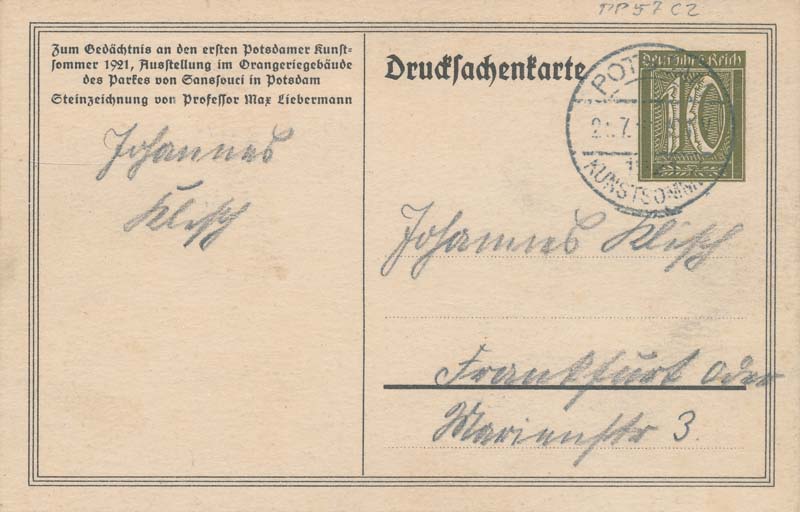 PP 57 C2
Zum Gedächtnis an den ersten Potsdamer Kunst-
sommer 1921, Ausstellung im Orangeriegebäude
des Parkes von Sanssouci in Potsdam
Steinzeichnung von Professor Max Liebermann
Johannes
Klisch
Drucksachenkarte
Deutsches Reich
10
POT
KUNSTSOMM
Johannes Klisch
Frankfurt Oder
Marienstr 3.